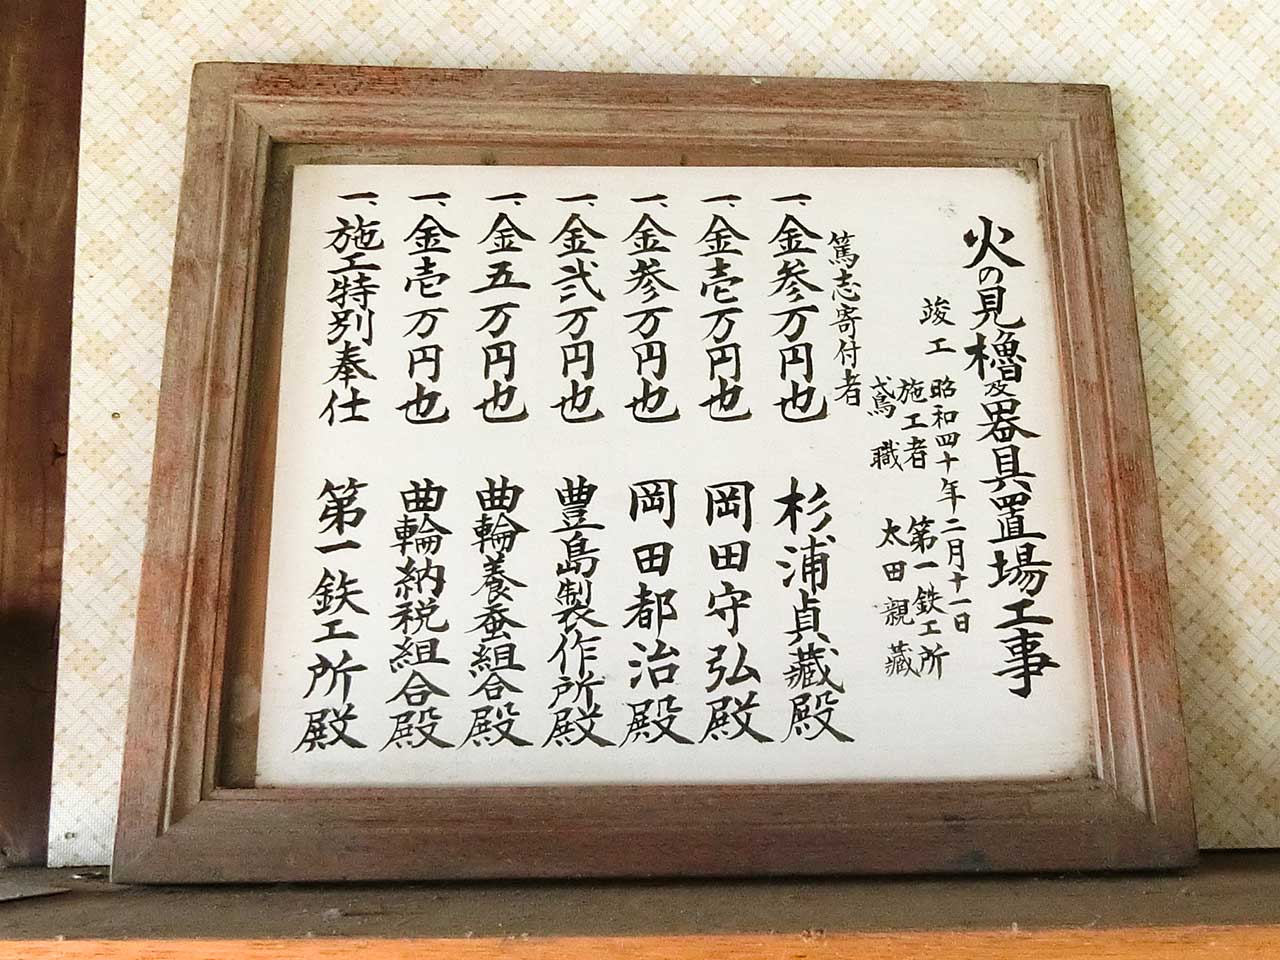 火の見櫓及器具置場工事
竣工 昭和四十年二月十一日
施工者 第一鉄工所
鳶職 太田親蔵
篤志寄付者
一、金参万円也 杉浦貞蔵殿
一、金壱万円也 岡田守弘殿
一、金参万円也 岡田都治殿
一、金弐万円也 豊島製作所殿
一、金五万円也 曲輪養蚕組合殿
一、金壱万円也 曲輪納税組合殿
一、施工特別奉仕 第一鉄工所殿